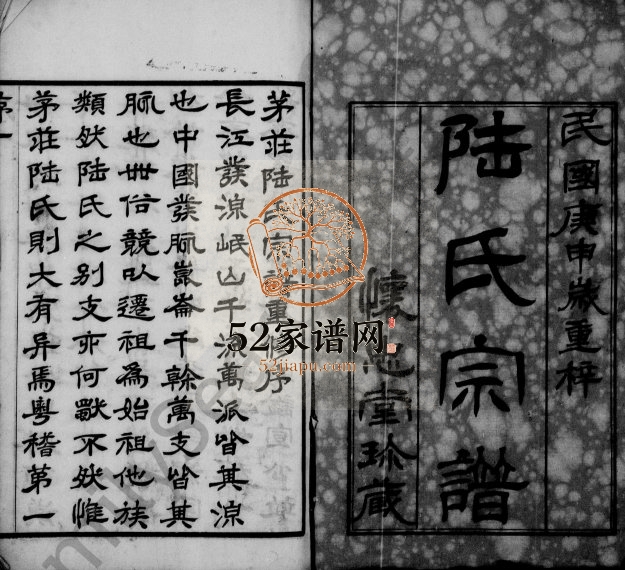 民國庚申歲重梓
陸氏宗譜
懷堂珍藏
茅莊陸氏宗譜重序
長江發源岷山千源萬派皆其源
也中國發脈崑崙千榦萬支皆其
脈也世俗競以遷祖為始祖他族
類然陸氏之别支亦何獨不然惟
茅莊陸氏則大有异焉粵稽第一
序一
52家谱网
52jiapu.com